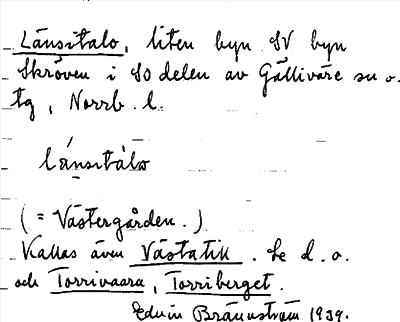 Länsitalo, liten byn SV byn
Skröven i SO delen av Gällivare sn o.
tg, Norrb. l.
lánsıtàlo
(= Västergården.)
Kallas även Västatik. Se d. o.
och Torrivaara, Torriberget.
Edvin Brännström 1939.